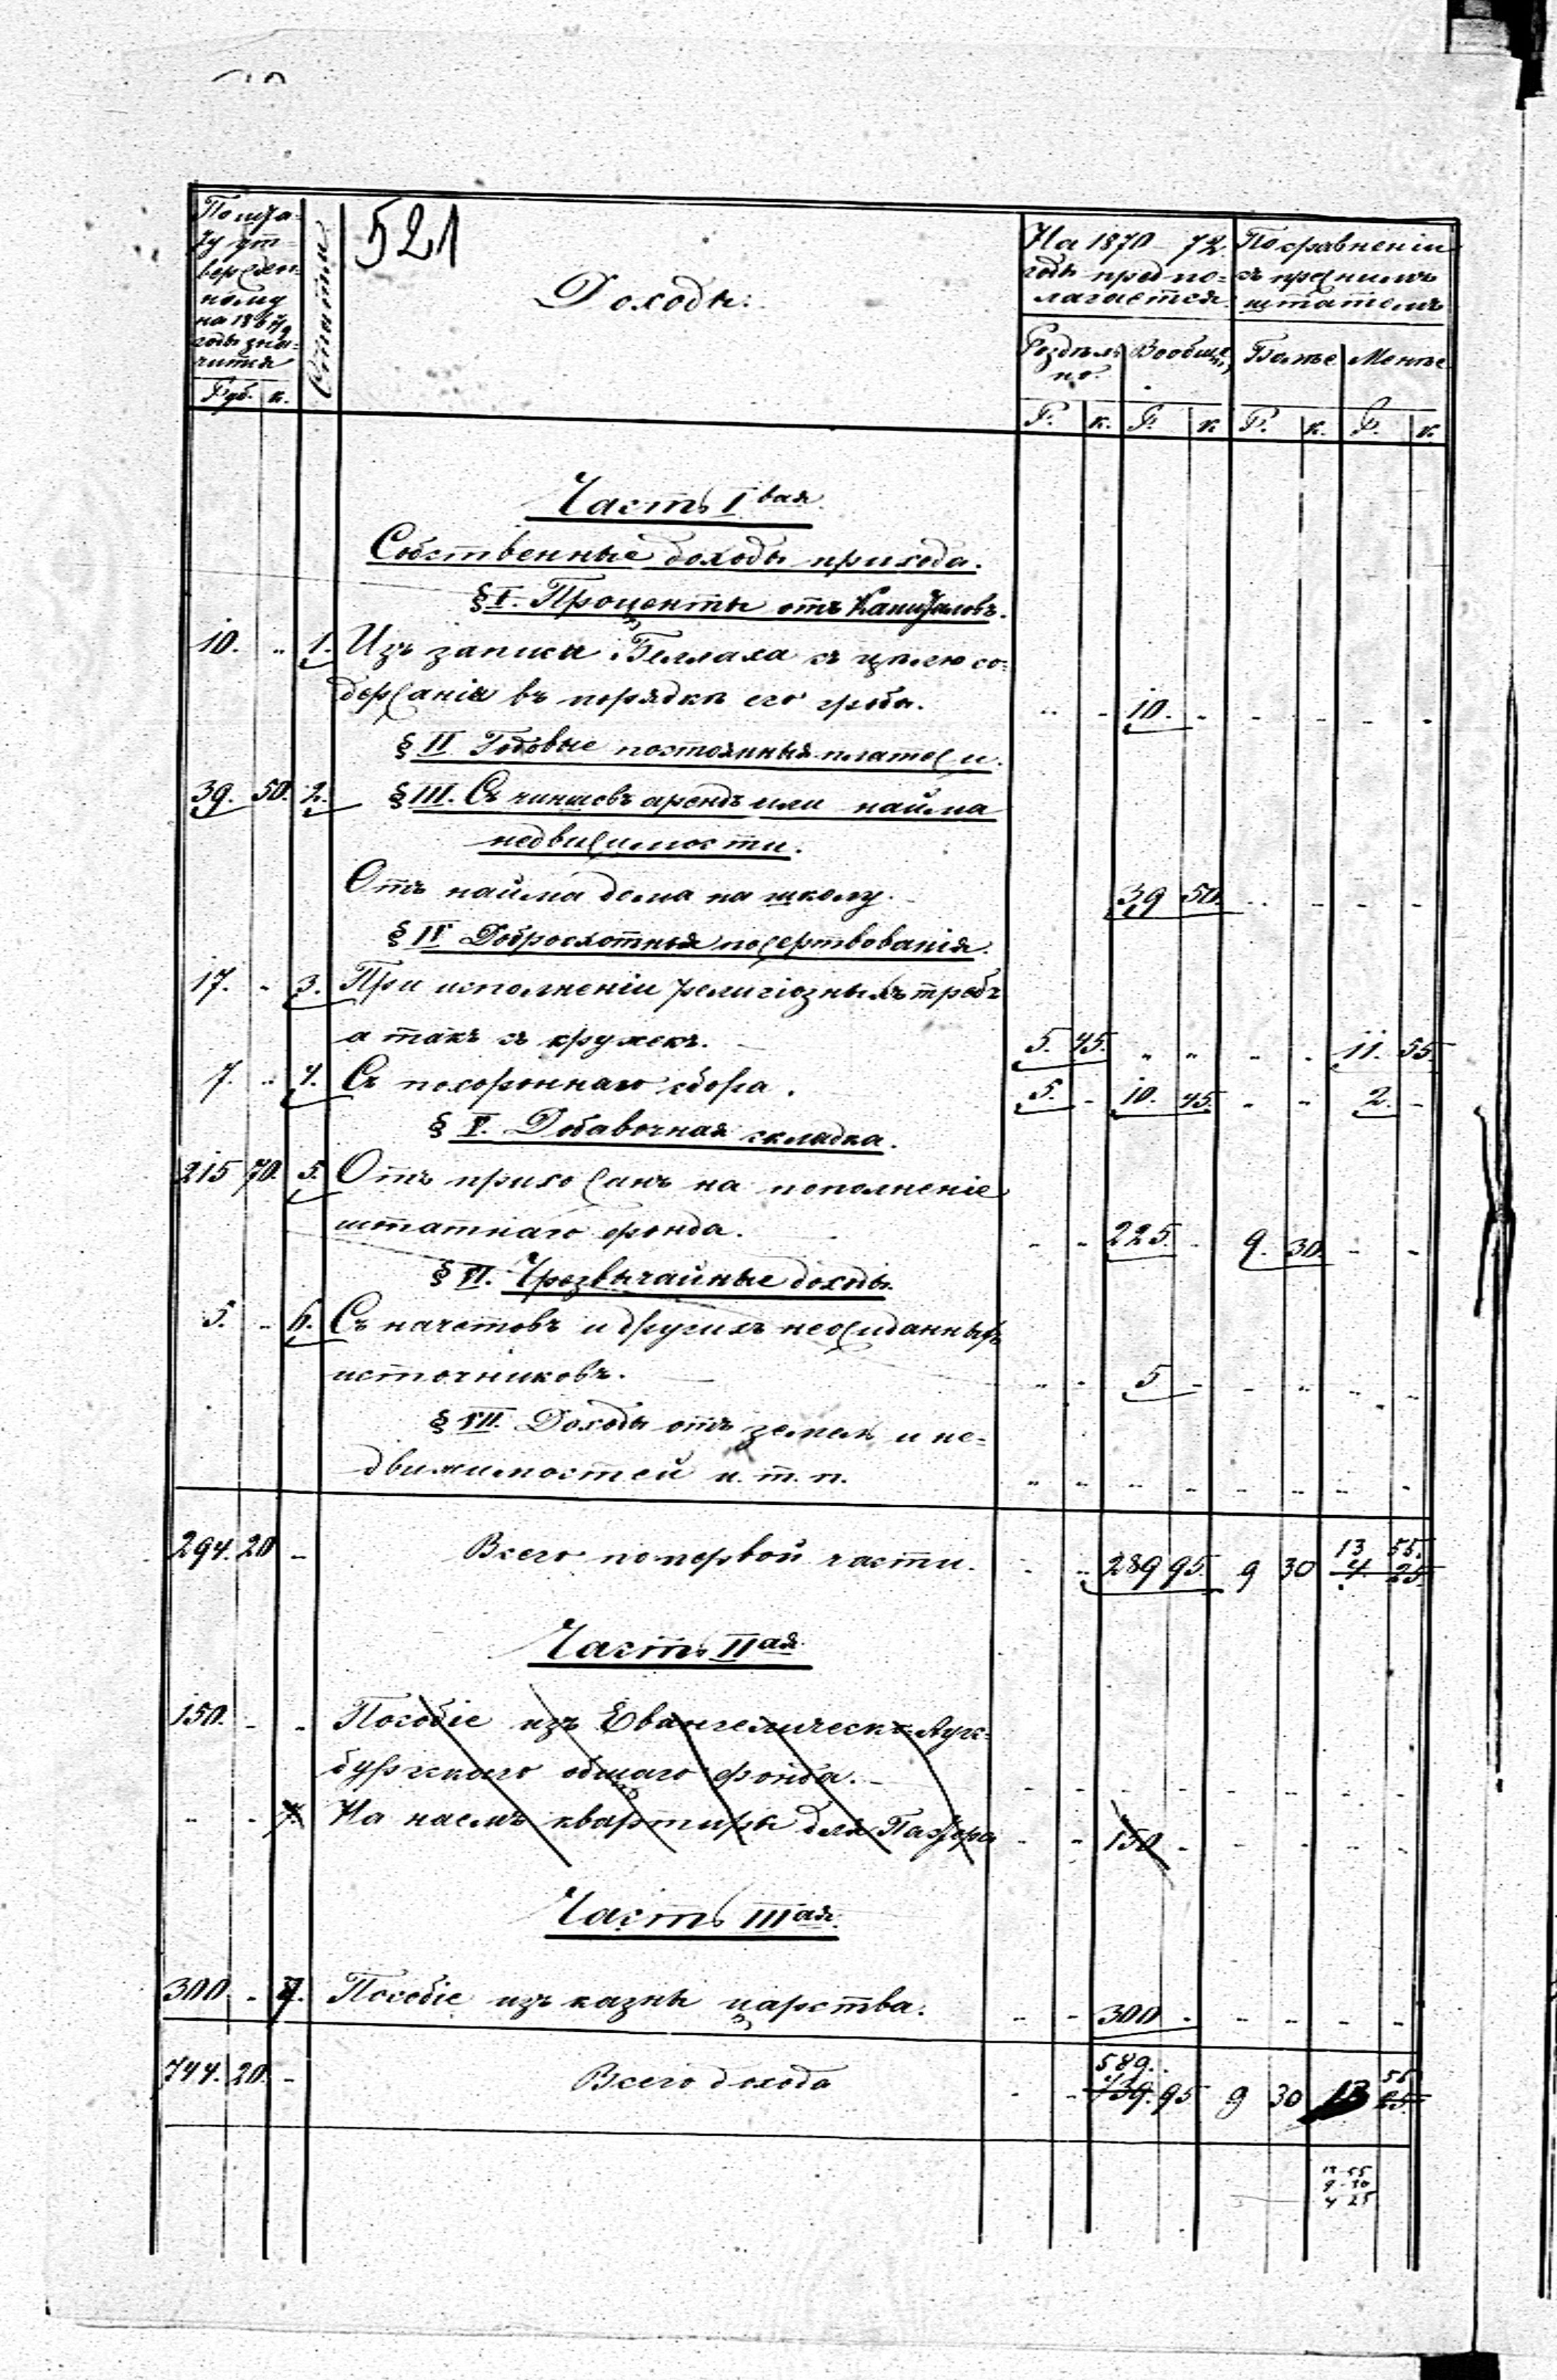 521
По шта-
ту ут-
вержден-
ному
на 1867/9
годы зна-
чится
Руб. к.
Статьи
Доходы:
На 1870-72
годы предпо-
лагается
Раздѣль-
но. Вообще
Р. к. Р. к
По сравненiи
съ прежнимъ
штатомъ
Болѣе Менѣе
Р. к. Р. к.
Часть I вая.
Собственные доходы прихода.
§ I. Проценты отъ Капиталовъ.
10. „ 1. Изъ записи Беллаха съ цѣлью со-
держанія въ порядкѣ его гроба. „ - 10. - - - - -
§ II Годовые постоянныя платежи.
39. 50. 2. § III. Съ чиншовъ арендъ или найма
недвижимости.
Отъ найма дома на школу. 39 50. „ - - -
§ IV Доброхотныя пожертвованія.
17. „ 3. При исполненіи религіозныхъ требъ
а такъ съ кружекъ. 5. 45. „ „ „ . 11. 55.
7. „ 4. Съ похороннаго сбора. 5. - 10. 45. „ „ 2. -
§ V. Добавочная складка.
215 70. 5. Отъ прихожанъ на пополненіе
штатнаго фонда. - - 225. - 9. 30. - -
§ VI. Чрезвычайные доходы.
5. „ 6. Съ начетовъ и другихъ неожиданныхъ
источниковъ. „ - 5 - - „ - -
§ VII. Доходы отъ земель и не-
движимостей и. т. п. „ „ „ „ „ „ „ „
294. 20 „ Всего по первой части. - „ 289 95. 9 30 13 55.
4 25.
Часть II ая.
150. - „ Пособіе изъ Евангелическо Аугс-
бургскаго общаго фонда. - - - - - - - -
„ - 7. На наемъ квартиры для Пастора - - 150 - - - - -
Часть III ая.
300. - 7. Пособіе изъ казны царства. „ - 300 - - - - -
744. 20. - Всего дохода - -
589.
739. 95 9 30 13 55
25.
13 55
9 30
4 25